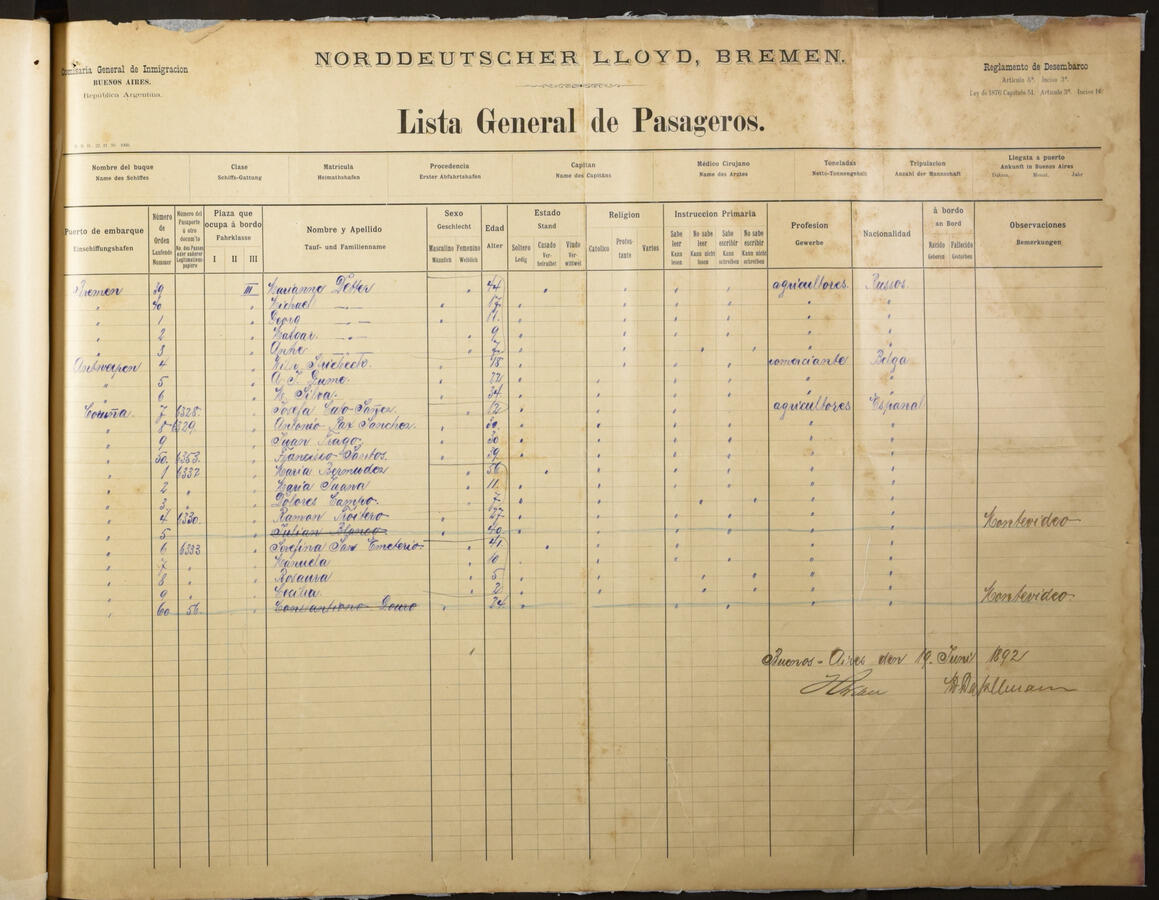 NORDDEUTSCHER LLOYD, BREMEN.
Comisaria General de Inmigracion
BUENOS AIRES.
República Argentina.
Reglamento de Desembarco
Artículo 8º. Inciso 3º.
Ley de 1876 Capítulo 51. Artículo 3º. Inciso 10º
Lista General de Pasageros.
Nombre del buque Clase Matricula Procedencia Capitan Médico Cirujano Toneladas Tripulacion Llegata a puerto
Name des Schiffes Schiffs-Gattung Heimathshafen Erster Abfahrtshafen Name des Capitäns Name des Arztes Netto-Tonnengehalt Anzahl der Mannschaft Ankunft in Buenos Aires
Datum. Monat. Jahr
Puerto de embarque
Einschiffungshafen
Número de Orden
Laufende Nummer
Número del Pasaporte ó otro docum'to
No. des Passes oder anderer Legitimations-papiere
Plaza que ocupa á bordo
Fahrklasse
I II III
Nombre y Apellido
Tauf- und Familienname
Sexo
Geschlecht
Masculino Femenino
Männlich Weiblich
Edad
Alter
Estado
Stand
Soltero Casado Viudo
Ledig Verheirathet Verwittwet
Religion
Catolico Protestante Varios
Instruccion Primaria
Sabe leer No sabe leer Sabe escribir No sabe escribir
Kann lesen Kann nicht lesen Kann schreiben Kann nicht schreiben
Profesion
Gewerbe
Nacionalidad
á bordo
an Bord
Nacido Fallecido
Geboren Gestorben
Observaciones
Bemerkungen
Bremen 39 III Marianna Detter 44 agricultores Russos
" 40 " Michael — " — 17 " "
" 1 " Georg — " — 11 " "
" 2 " — " — 9 " "
" 3 " — " — 7 " "
Antwerpen 4 " 18 comerciante Belga
" 5 " 22 " "
" 6 " Silva 34 " "
Coruña 7 6328. " Josefa 12 agricultores Espanal
" 8 6329. " Antonio Pax Sanchez 30 " "
" 9 " Juan 30 " "
" 50. 6353. " Francisco Santos. 39 " "
" 1 6337 " Maria Bermudez 56 " "
" 2 " " Maria Juana 11. " "
" 3. " " Dolores Campo 7 " "
" 4 6330. " Ramon 27 " " Montevideo
" 5 " Julian Blanco 40 " "
" 6 6333 " Josefina San Emeterio 41. " "
" 7 " " Manuela 10 " "
" 8 " " Rosaura 5 " "
" 9 " " Cecilia 2 " "
" 60 56. " Constantino 24 " " Montevideo
Buenos-Aires den 19. Juni 1892